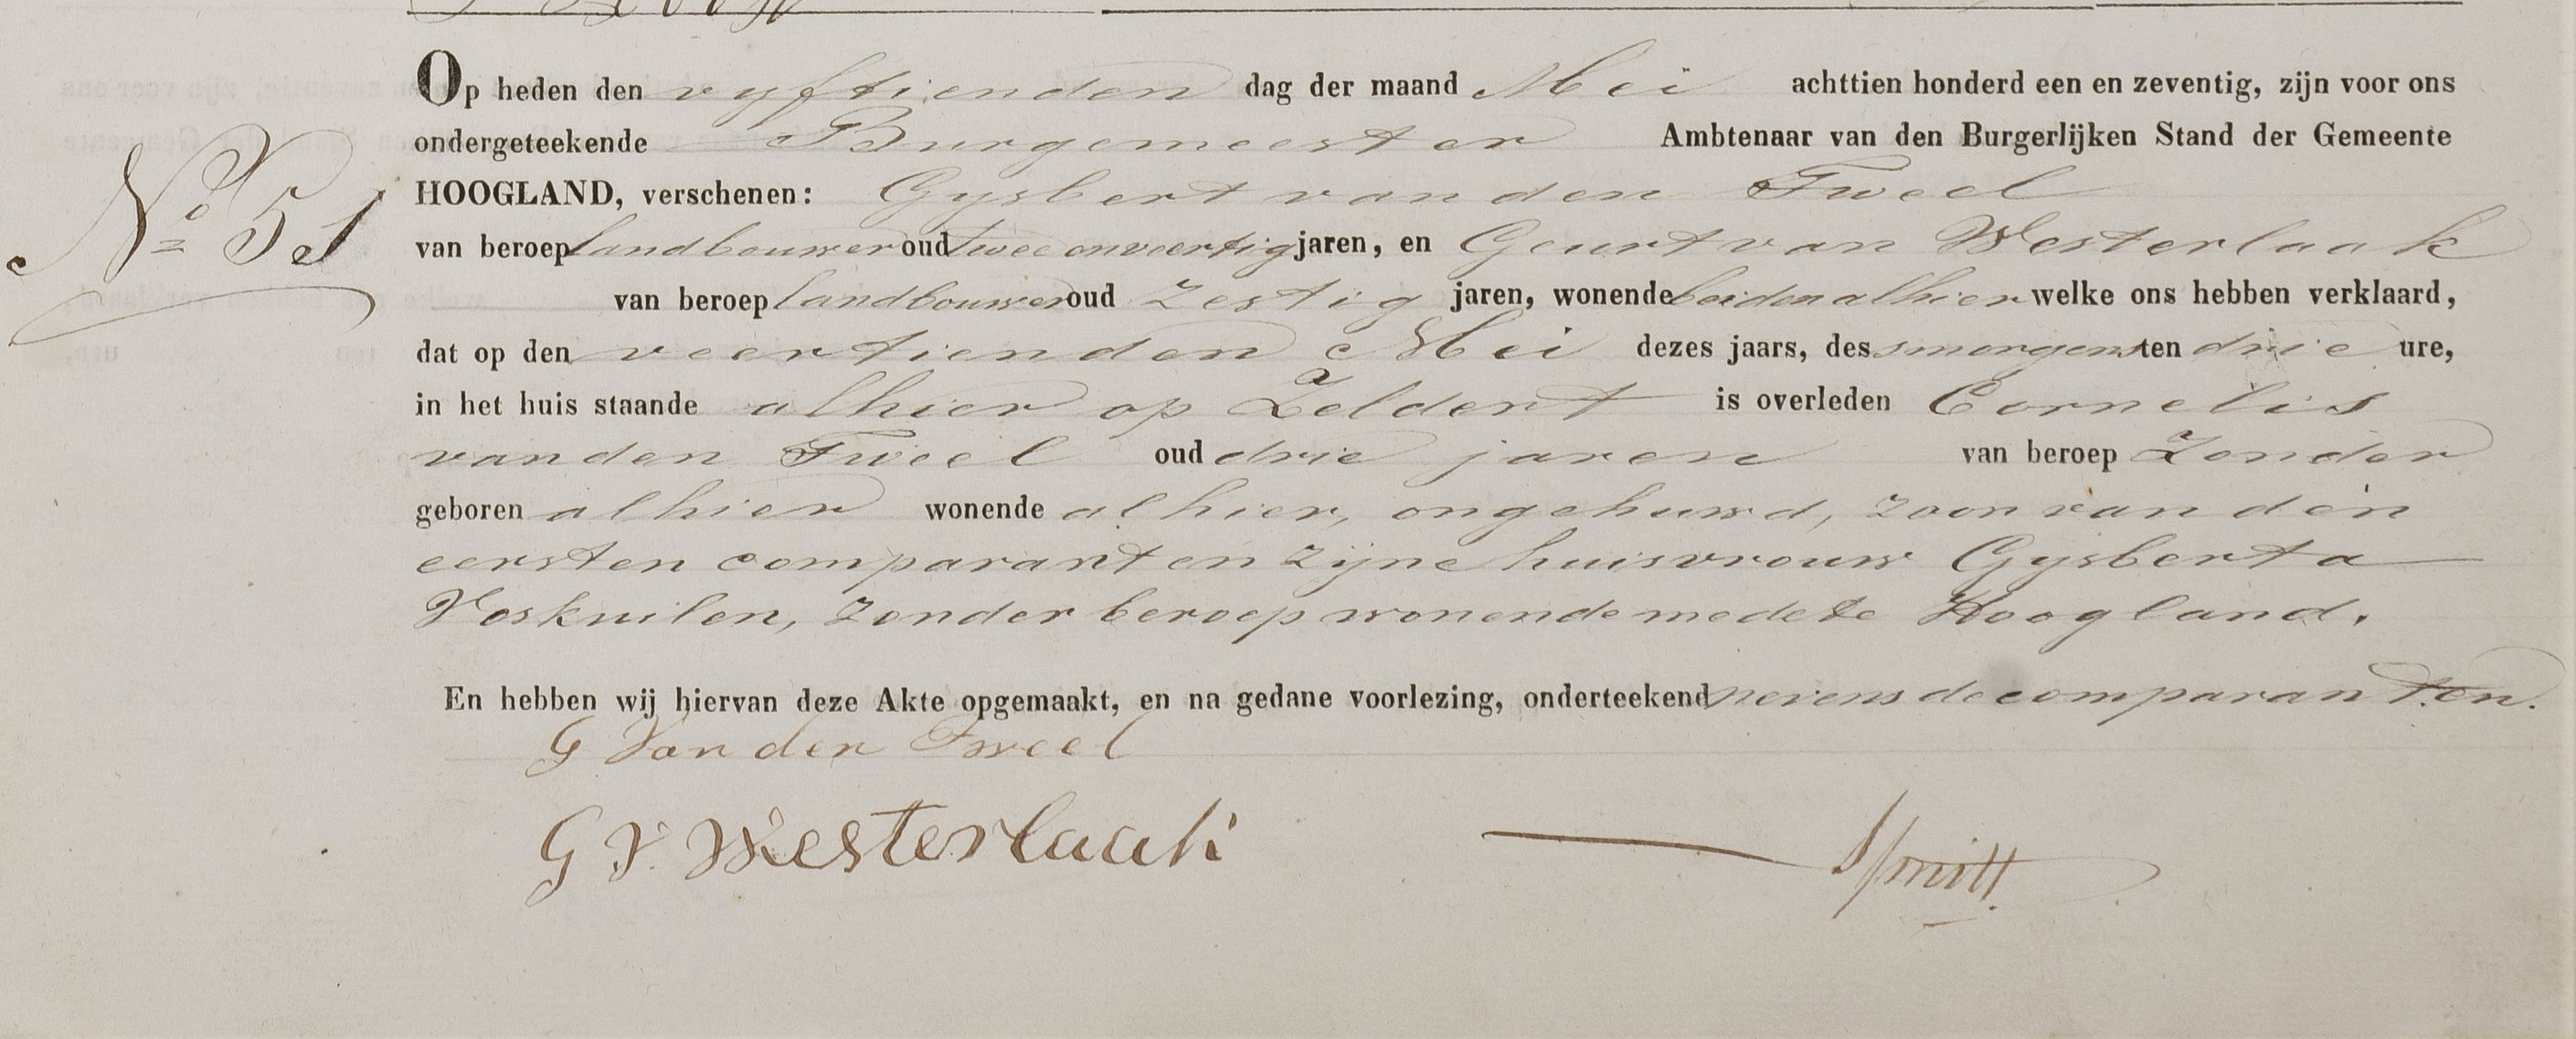 Op heden den vyftienden dag der maand Mei achttien honderd een en zeventig, zijn voor ons
ondergeteekende Burgemeester Ambtenaar van den Burgerlijken Stand der Gemeente
HOOGLAND, verschenen: Gysbert van den Tweel
No 51
van beroep landbouwer oud twee en veertig jaren, en Geurt van Westerlaak
van beroep landbouwer oud zestig jaren, wonende beiden alhier welke ons hebben verklaard,
dat op den veertienden Mei dezes jaars, des smorgens ten drie ure,
in het huis staande alhier op Zeldert is overleden Cornelis
van den Tweel oud drie jaren van beroep Zonder
geboren alhier wonende alhier, ongehuwd, zoon van den
eersten comparant en zijne huisvrouw Gysberta
Voskuilen, zonder beroep wonende mede te Hoogland.
En hebben wij hiervan deze Akte opgemaakt, en na gedane voorlezing, onderteekend nevens de comparanten.
G Van den Tweel
G V. Westerlaak